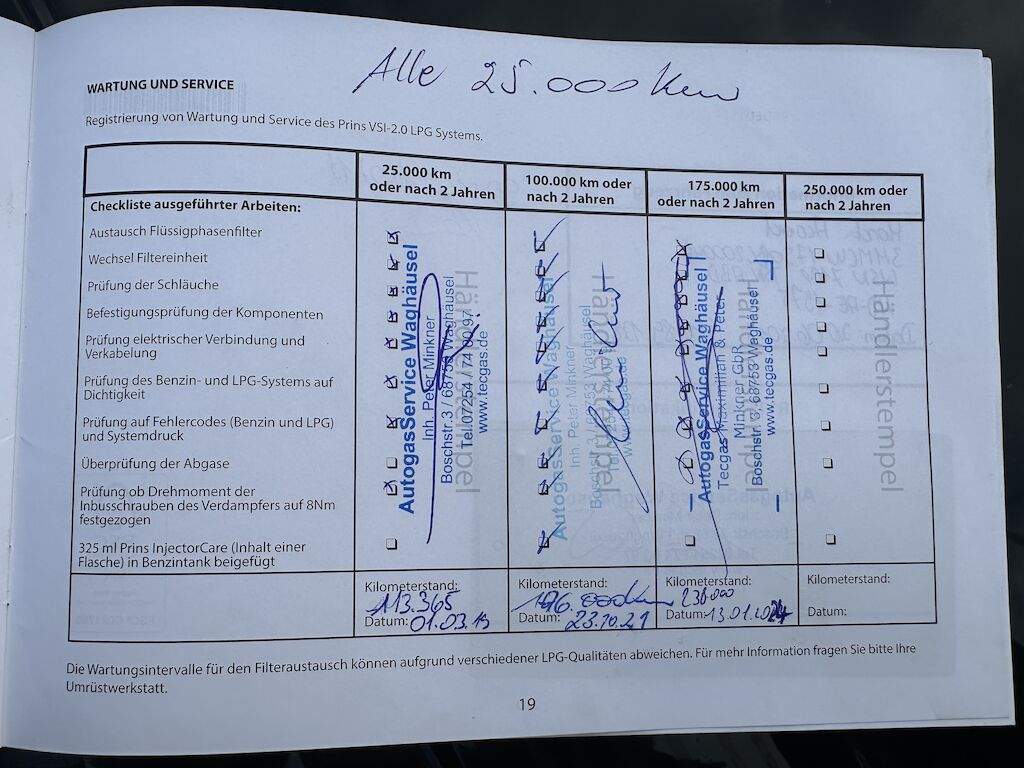 Alle 25.000 Km
WARTUNG UND SERVICE
Registrierung von Wartung und Service des Prins VSI-2.0 LPG Systems.
25.000 km
oder nach 2 Jahren
100.000 km oder
nach 2 Jahren
175.000 km
oder nach 2 Jahren
250.000 km oder
nach 2 Jahren
Checkliste ausgeführter Arbeiten:
Austausch Flüssigphasenfilter
Wechsel Filtereinheit
Prüfung der Schläuche
Befestigungsprüfung der Komponenten
Prüfung elektrischer Verbindung und
Verkabelung
Prüfung des Benzin- und LPG-Systems auf
Dichtigkeit
Prüfung auf Fehlercodes (Benzin und LPG)
und Systemdruck
Überprüfung der Abgase
Prüfung ob Drehmoment der
Inbusschrauben des Verdampfers auf 8Nm
festgezogen
325 ml Prins InjectorCare (Inhalt einer
Flasche) in Benzintank beigefügt
AutogasService Waghäusel
Inh. Peter Minkner
Boschstr.3 / 68753 Waghäusel
Tel.07254 / 74 00 97
www.tecgas.de
Händlerstempel
AutogasService Waghäusel
Inh Peter Minkner
Boschstr.3, 68753 Waghäusel
www.tecgas.de
Händlerstempel
AutogasService Waghäusel
Tecgas Maximilian & Peter
Minkner GbR
Boschstr. 3, 68753 Waghäusel
www.tecgas.de
Händlerstempel
Händlerstempel
Kilometerstand:
113.365
Datum: 01.03.19
Kilometerstand:
196.000km
Datum: 23.10.21
Kilometerstand:
236.000
Datum: 13.01.2024
Kilometerstand:
Datum:
Die Wartungsintervalle für den Filteraustausch können aufgrund verschiedener LPG-Qualitäten abweichen. Für mehr Information fragen Sie bitte Ihre
Umrüstwerkstatt.
19